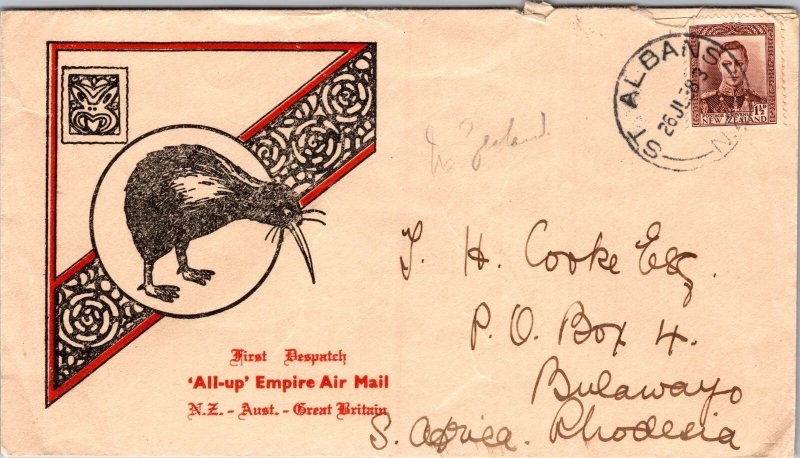 ST ALBANS
26 JL 38 3
N.Z.
1½D
NEW ZEALAND
Zealand.
J. H. Cooke Esq.
P. O. Box 4.
Bulawayo
S. Africa. Rhodesia
First Despatch
'All-up' Empire Air Mail
N.Z. - Aust. - Great Britain